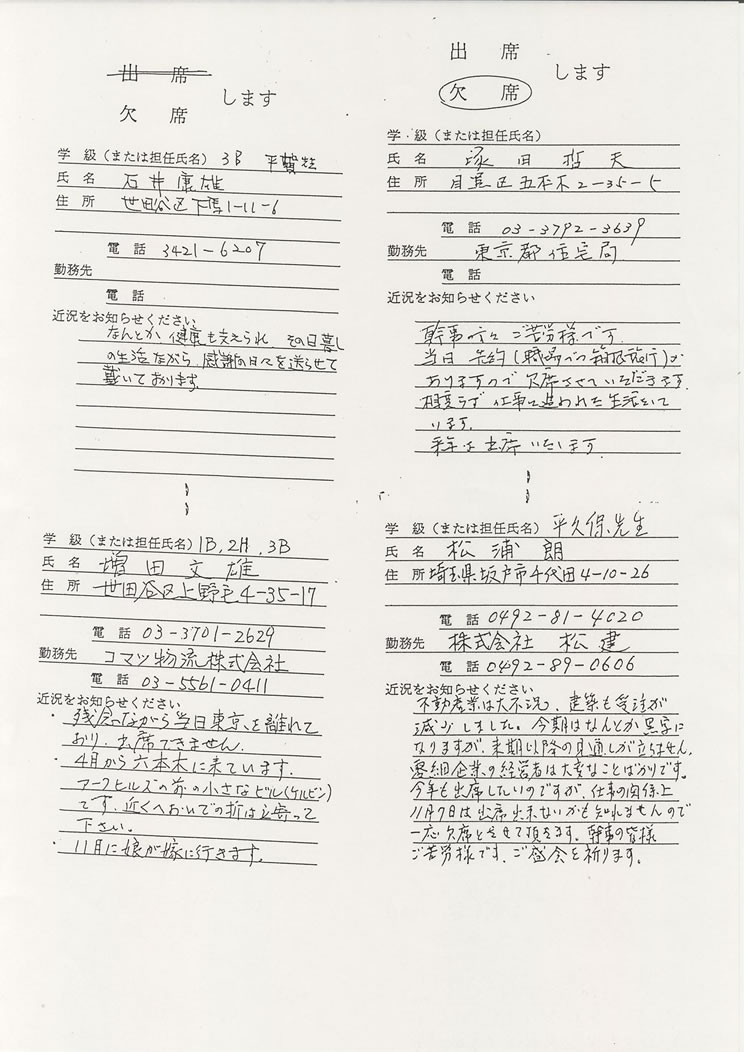 出席
欠席
します
学級（または担任氏名）3B 平賀
氏名 石井康雄
住所 世田谷区下馬1-11-6
電話 3421-6207
勤務先
電話
近況をお知らせください
なんとか健康も支えられ その日暮し
の生活ながら、感謝の日々を送らせて
戴いております。
出席
欠席
します
学級（または担任氏名）
氏名 塚田哲夫
住所 目黒区五本木2-35-5
電話 03-3792-3639
勤務先 東京都住宅局
電話
近況をお知らせください
幹事の方々ご苦労様です。
当日 先約（職場での箱根旅行）が
ありますので欠席させていただきます。
相変らず仕事に追われた生活をして
います。
来年は出席いたします
学級（または担任氏名）1B, 2H, 3B
氏名 増田文雄
住所 世田谷区上野毛4-35-17
電話 03-3701-2629
勤務先 コマツ物流株式会社
電話 03-5561-0411
近況をお知らせください
・残念ながら当日東京を離れて
おり、出席できません。
・4月から六本木に来ています。
アークヒルズの前の小さなビル(ケルビン)
です。近くへおいでの折は立寄って
下さい。
・11月に娘が嫁に行きます。
学級（または担任氏名）平久保先生
氏名 松浦朗
住所 埼玉県坂戸市千代田4-10-26
電話 0492-81-4020
勤務先 株式会社 松建
電話 0492-89-0606
近況をお知らせください
不動産業は大不況、建築も受注が
減少しました。今期はなんとか黒字に
なりますが、来期以降の見通しが立ちません。
零細企業の経営者は大変なことばかりです。
今年も出席したいのですが、仕事の関係上
11月7日は出席出来ないかも知れませんので
一応欠席とさせて頂きます。幹事の皆様
ご苦労様です。ご盛会を祈ります。